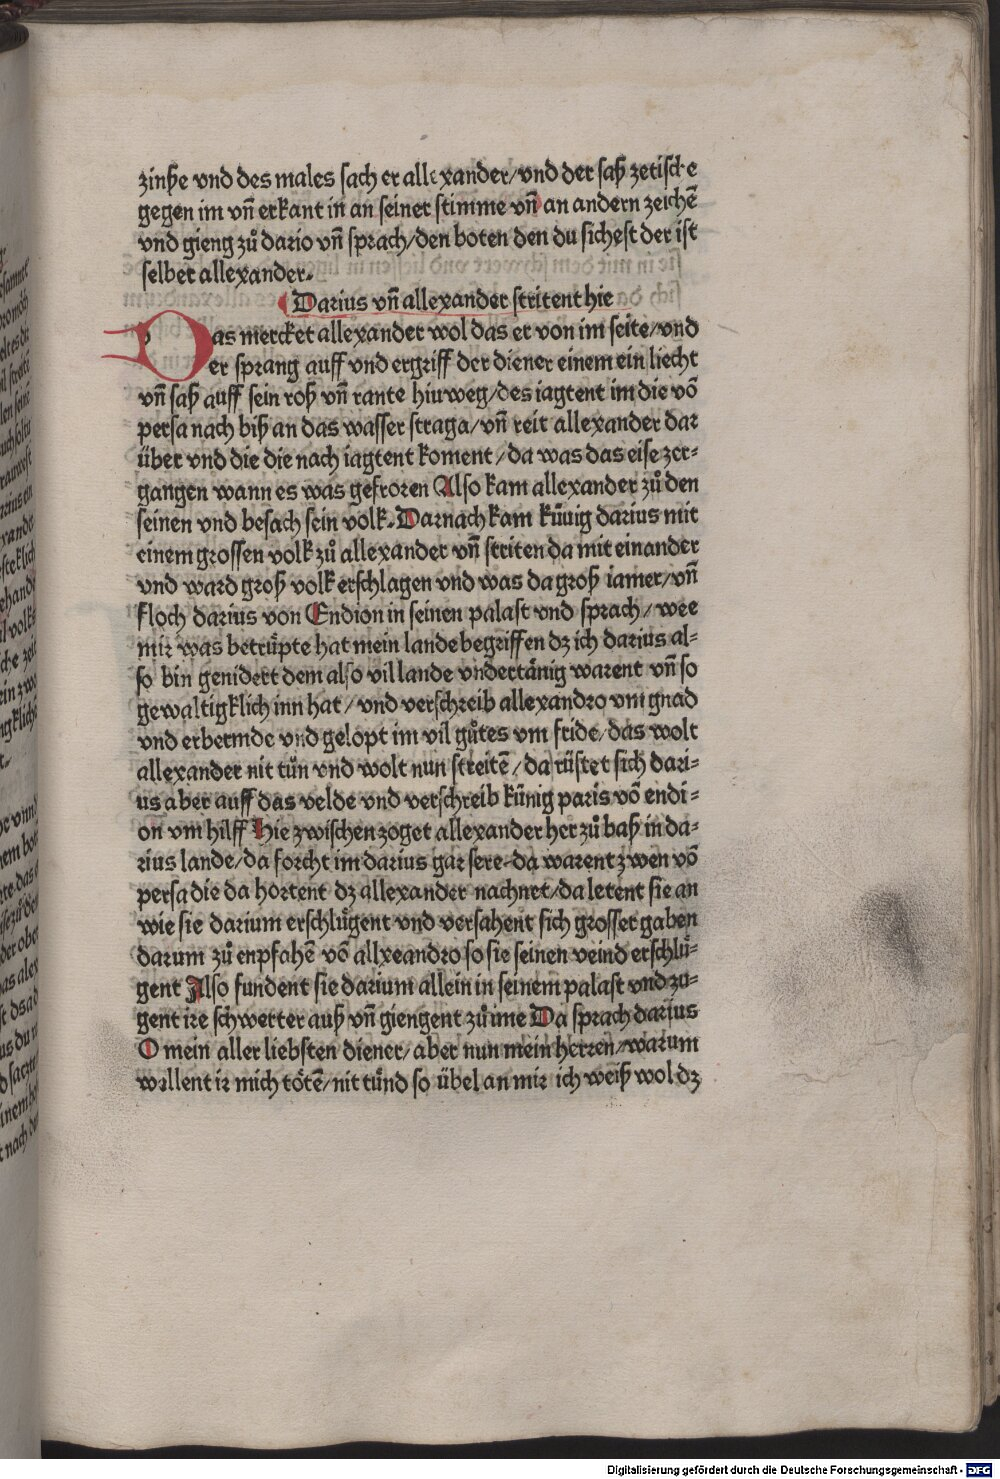 zinße vnd des males sach er allexander/vnd der saß ze tische
gegen im vñ erkant in an seiner stimme vñ an andern zeichē
vnd gieng zů dario vñ sprach/den boten den du sichest der ist
selber allexander.
Darius vñ allexander stritent hie
Das mercket allexander wol das er von im seite/vnd
er sprang auff vnd ergriff der diener einem ein liecht
vñ saß auff sein roß vñ rante hinweg/des iagtent im die vō
persa nach biß an das wasser straga/vñ reit allexander dar
über vnd die die nach iagtent koment/da was das eise zer-
gangen wann es was gefroren Also kam allexander zů den
seinen vnd besach sein volk. Darnach kam küuig darius mit
einem grossen volk zů allexander vñ striten da mit einander
vnd ward groß volk erschlagen vnd was da groß iamer/vñ
floch darius von Endion in seinen palast vnd sprach/wee
mir was betrüpte hat mein lande begriffen dz ich darius al-
so bin genidert dem also vil lande vndertänig warent vñ so
gewaltigklich inn hat/vnd verschreib allexandro vm gnad
vnd erbermde vnd gelopt im vil gůtes vm fride/das wolt
allexander nit tůn vnd wolt nun streitē/da rüstet sich dari-
us aber auff das velde vnd verschreib künig paris vō endi-
on vm hilff Hie zwischen zoget allexander her zů baß in da-
rius lande/da forcht im darius gar sere. da warent zwen vō
persa die da hortent dz allexander nachnet/da letent sie an
wie sie darium erschlůgent vnd versahent sich grosser gaben
darum zů enpfahē vō allxeandro so sie seinen veind erschlů-
gent Also fundent sie darium allein in seinem palast vnd zu-
gent ire schwerter auß vñ giengent zů ime Da sprach darius
O mein aller liebsten diener/aber nun mein herren/warum
wellent ir mich tötē/nit tůnd so übel an mir ich weiß wol dz
Digitalisierung gefördert durch die Deutsche Forschungsgemeinschaft - DFG